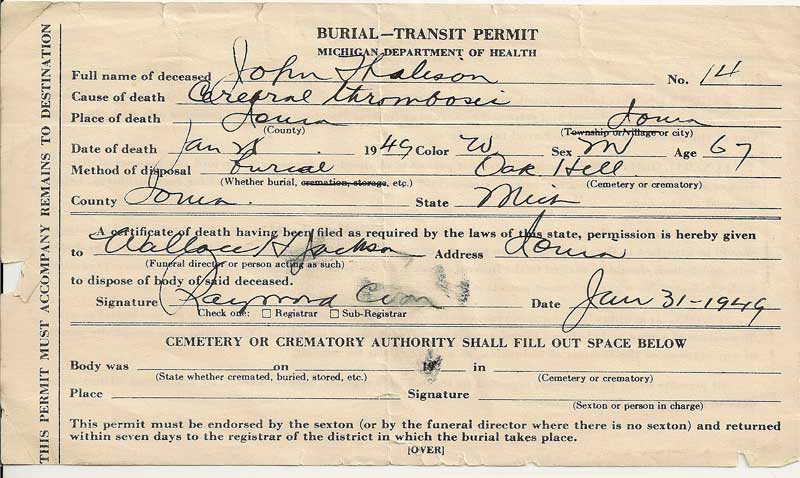 BURIAL—TRANSIT PERMIT
MICHIGAN DEPARTMENT OF HEALTH
Full name of deceased John No. 14
Cause of death
Place of death Ionia Ionia
(County) (Township or Village or city)
Date of death Jan 1949 Color W Sex M Age 67
Method of disposal burial Oak Hill
(Whether burial, cremation, storage, etc.) (Cemetery or crematory)
County Ionia. State Mich
A certificate of death having been filed as required by the laws of this state, permission is hereby given
to Wallace H Jackson Address Ionia
(Funeral director or person acting as such)
to dispose of body of said deceased.
Signature Raymond Date Jan 31-1949
Check one: Registrar Sub-Registrar
CEMETERY OR CREMATORY AUTHORITY SHALL FILL OUT SPACE BELOW
Body was on 19 in
(State whether cremated, buried, stored, etc.) (Cemetery or crematory)
Place Signature
(Sexton or person in charge)
This permit must be endorsed by the sexton (or by the funeral director where there is no sexton) and returned
within seven days to the registrar of the district in which the burial takes place.
[OVER]
THIS PERMIT MUST ACCOMPANY REMAINS TO DESTINATION